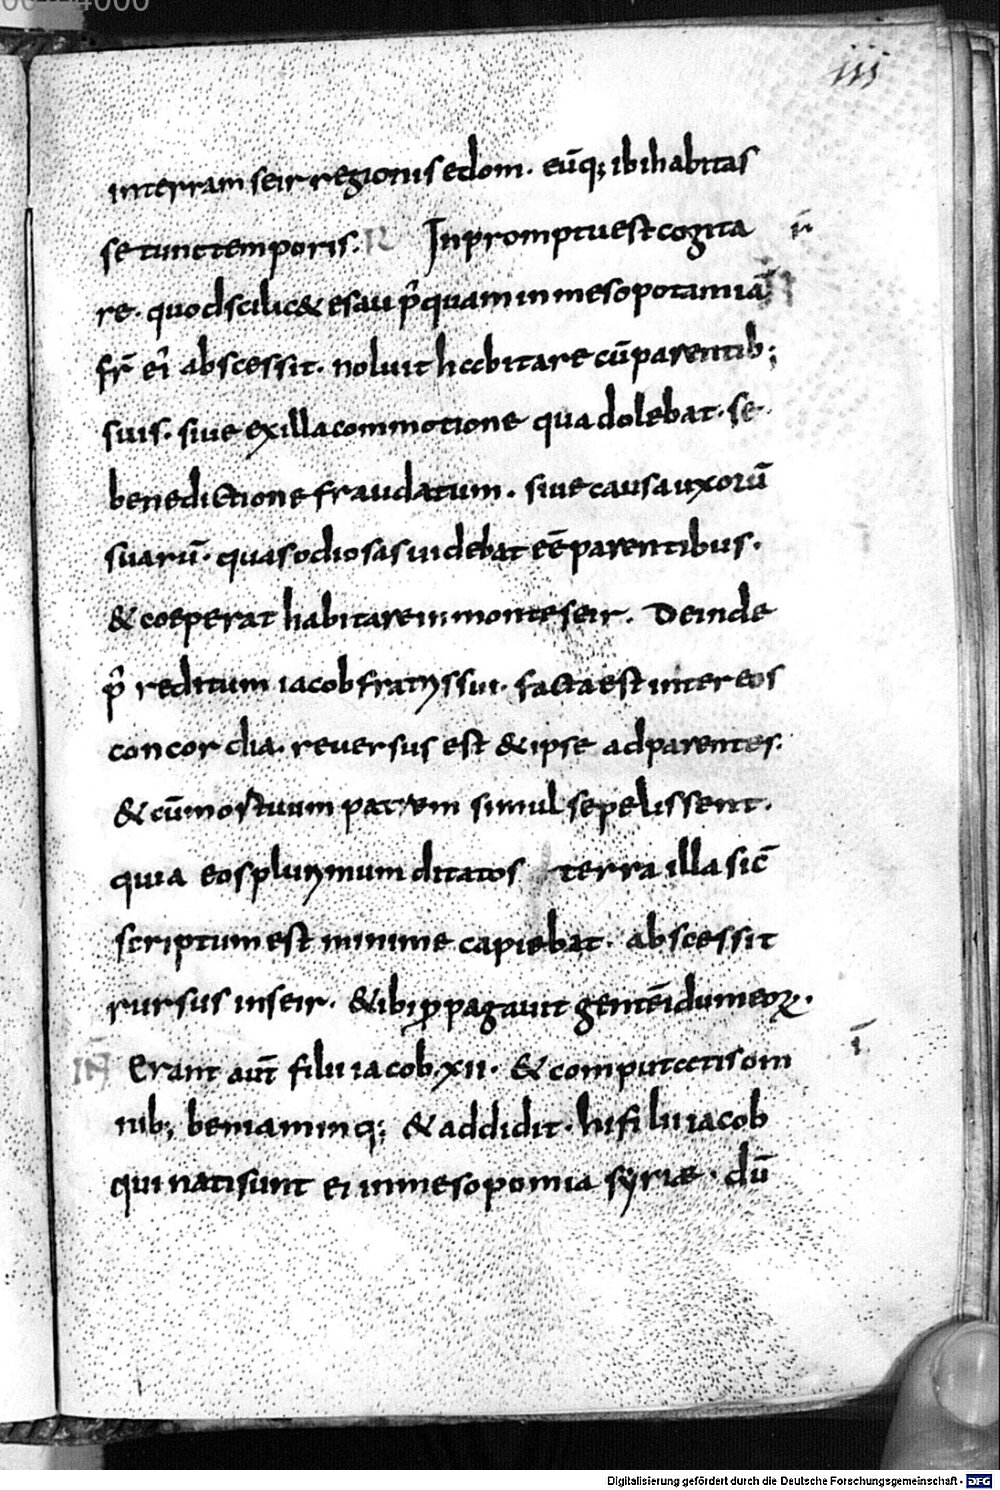 iii
interram seir regionis edom. eūq; ibi habitas
se tunc temporis. R Inpromptu est cogita
re. quod scilic& esau p̄quam in mesopotamiā
fr̄ ei abscessit. noluit habitare cū parentib;
suis. siue ex illa commotione qua dolebat. se
benedictione fraudatum. siue causa uxorū
suarū. quas odiosas uidebat eē parentibus.
& coeperat habitare in monte seir. Deinde
p̄ reditum iacob fratris sui. facta est inter eos
concordia. reuersus est & ipse ad parentes.
& cū mortuum patrem simul sepelissent.
quia eos plurimum ditatos terra illa sic̄
scriptum est minime capiebat. abscessit
rursus in seir. & ibi ꝓpagauit gentē idumeoꝝ.
Erant aut̄ filii iacob. xii. & computatis om
nib; beniaminq; & addidit. hi filii iacob
qui nati sunt ei in mesopomia syriæ. dū
Digitalisierung gefördert durch die Deutsche Forschungsgemeinschaft - DFG